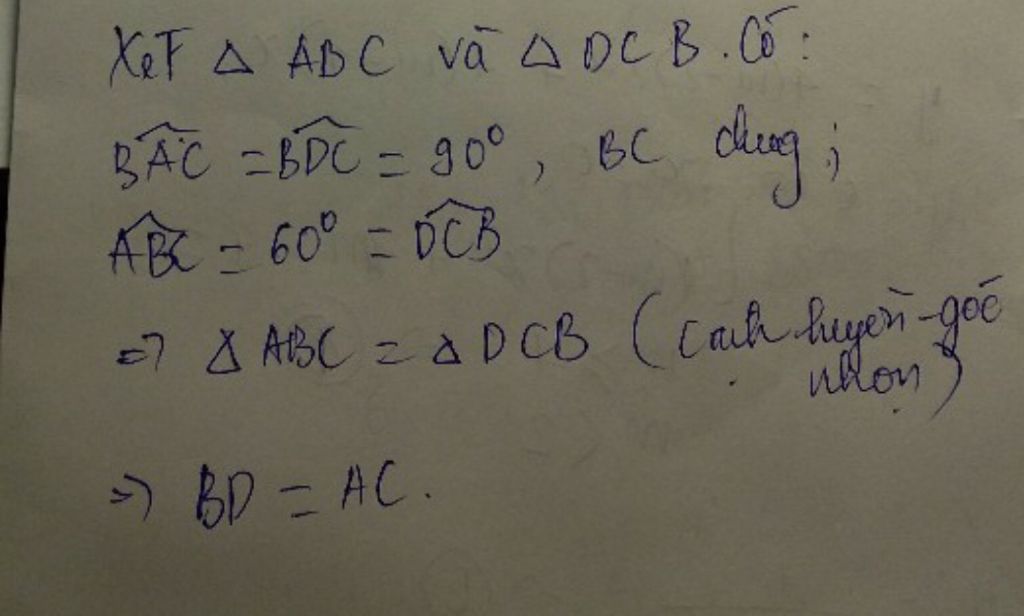 Xét △ ABC và △ DCB. Có:
BAC = BDC = 90°, BC chung;
ABC = 60° = DCB
=> △ ABC = △ DCB (cạnh huyền-góc
nhọn)
=> BD = AC.